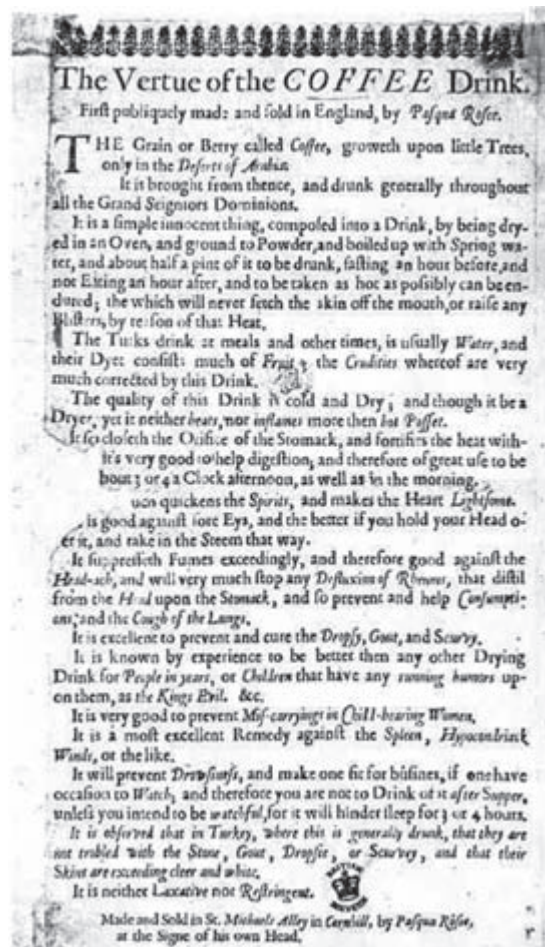 The Vertue of the COFFEE Drink.
First publiquely made and sold in England, by Pasqua Rosee.
THE Grain or Berry called Coffee, groweth upon little Trees,
only in the Deserts of Arabia.
It is brought from thence, and drunk generally throughout
all the Grand Seigniors Dominions.
It is a simple innocent thing, composed into a Drink, by being dry-
ed in an Oven, and ground to Powder, and boiled up with Spring wa-
ter, and about half a pint of it to be drunk, fasting an hour before, and
not Eating an hour after, and to be taken as hot as possibly can be en-
dured; the which will never fetch the skin off the mouth, or raise any
Blisters, by reason of that Heat.
The Turks drink at meals and other times, is usually Water, and
their Dyet consists much of Fruit, the Crudities whereof are very
much corrected by this Drink.
The quality of this Drink is cold and Dry; and though it be a
Dryer, yet it neither heats, nor inflames more then hot Posset.
It so closeth the Orifice of the Stomack, and fortifies the heat with-
it's very good to help digestion; and therefore of great use to be
bout 3 or 4 a Clock afternoon, as well as in the morning.
quickens the Spirits, and makes the Heart Lightsome.
is good against sore Eys, and the better if you hold your Head o-
er it, and take in the Steem that way.
It suppresseth Fumes exceedingly, and therefore good against the
Head-ach, and will very much stop any Defluxion of Rheums, that distil
from the Head upon the Stomack, and so prevent and help Consumpti-
ons; and the Cough of the Lungs.
It is excellent to prevent and cure the Dropsy, Gout, and Scurvy.
It is known by experience to be better then any other Drying
Drink for People in years, or Children that have any running humors up-
on them, as the Kings Evil. &c.
It is very good to prevent Mis-carryings in Child-bearing Women.
It is a most excellent Remedy against the Spleen, Hypocondriack
Winds, or the like.
It will prevent Drowsiness, and make one fit for busines, if one have
occasion to Watch; and therefore you are not to Drink of it after Supper,
unless you intend to be watchful, for it will hinder sleep for 3 or 4 hours.
It is observed that in Turkey, where this is generally drunk, that they are
not trobled with the Stone, Gout, Dropsie, or Scurvey, and that their
Skins are exceeding cleer and white.
It is neither Laxative nor Restringent.
BRITISH
MUSEUM
Made and Sold in St. Michaels Alley in Cornhill, by Pasqua Rosee,
at the Signe of his own Head.